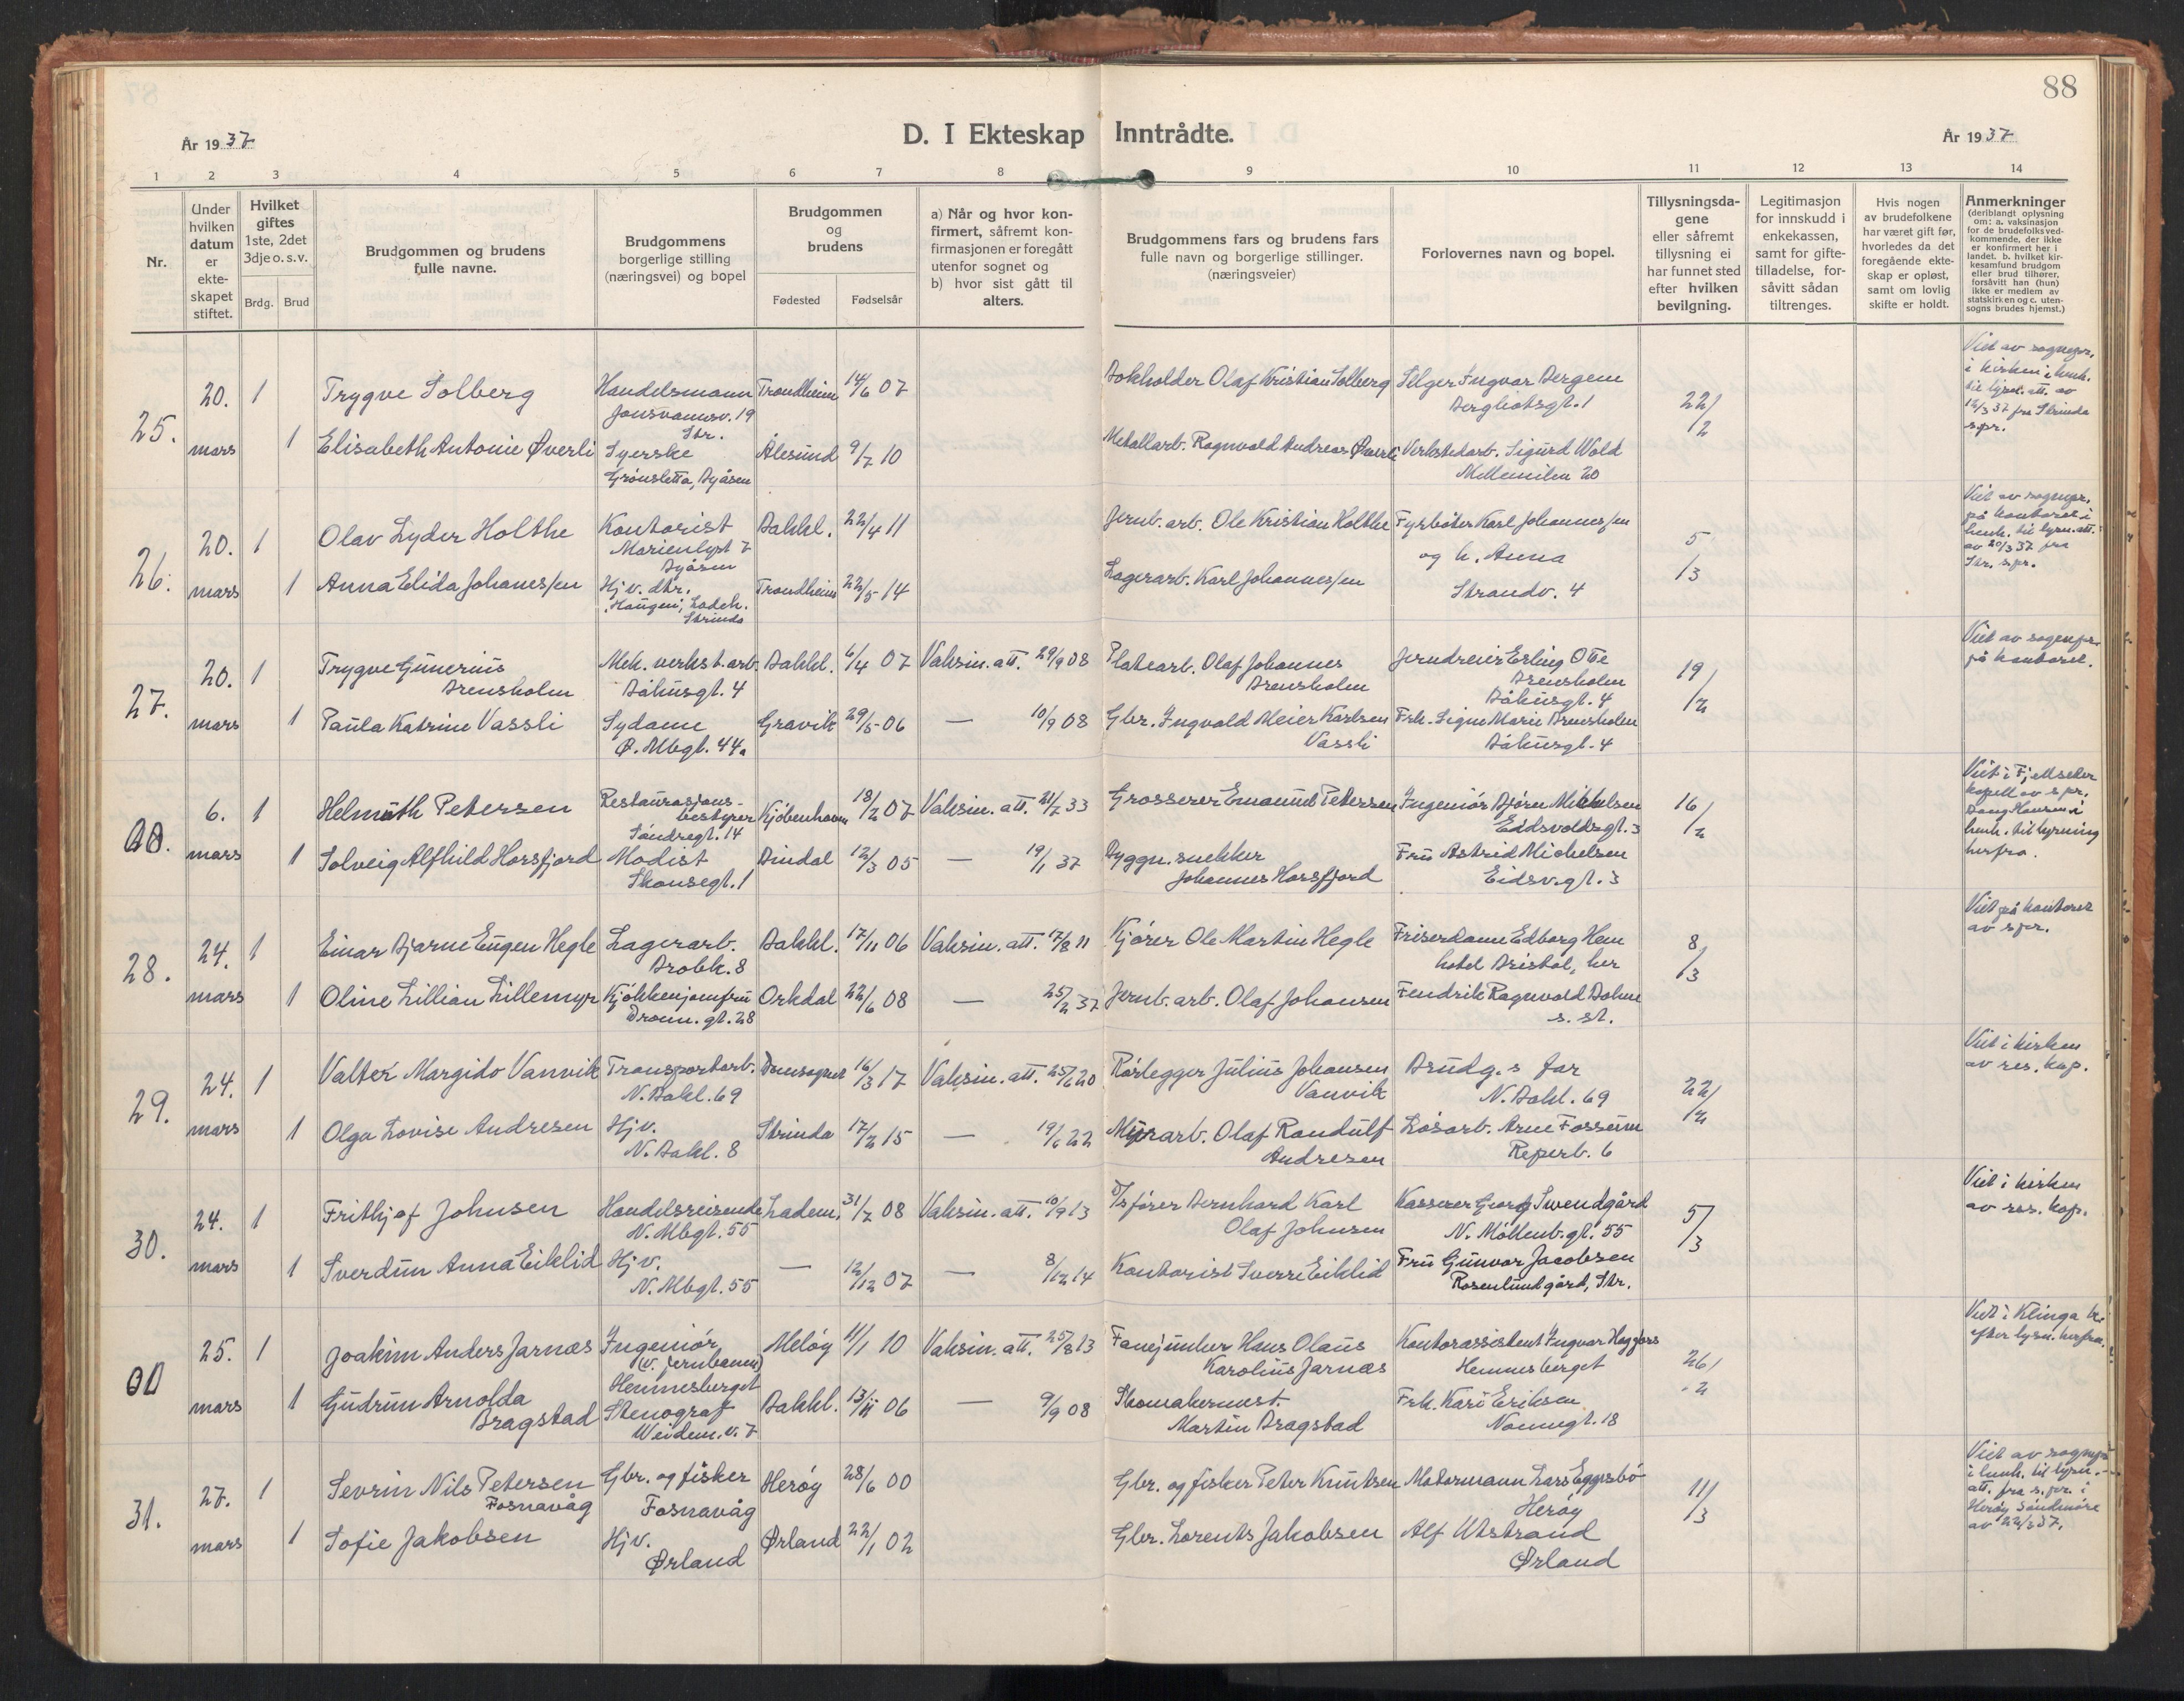 88
År 1937
D. I Ekteskap Inntrådte.
År 1937
1 2 3 4 5 6 7 8 9 10 11 12 13 14
Nr.
Under hvilken datum er ekte-skapet stiftet.
Hvilket giftes
1ste, 2det 3dje o.s.v.
Brdg. Brud
Brudgommen og brudens fulle navne.
Brudgommens borgerlige stilling (næringsvei) og bopel
Brudgommen og brudens
Fødested Fødselsår
a) Når og hvor kon-
firmert, såfremt kon-
firmasjonen er foregått
utenfor sognet og
b) hvor sist gått til
alters.
Brudgommens fars og brudens fars
fulle navn og borgerlige stillinger.
(næringsveier)
Forlovernes navn og bopel.
Tillysningsda-
gene
eller såfremt
tillysning ei
har funnet sted
efter hvilken
bevilgning.
Legitimasjon
for innskudd i
enkekassen,
samt for gifte-
tilladelse, for-
såvitt sådan
tiltrenges.
Hvis nogen
av brudefolkene
har været gift før,
hvorledes da det
foregående ekte-
skap er opløst,
samt om lovlig
skifte er holdt.
Anmerkninger
(deriblandt oplysning
om: a. vaksinasjon
for de brudefolksved-
kommende, der ikke
er konfirmert her i
landet. b. hvilket kir-
kesamfund brudgom
eller brud tilhører,
forsåvitt han (hun)
ikke er medlem av
statskirken og c. uten-
sogns brudes hjemst.)
25.
20. 1 Trygve Solberg Handelsmann Trondheim 14/6 07 Bokholder Olaf Kristian Solberg Selger Ingvar Bergem
Jonsvannsv. 19 Str. Bergliotsgt. 1 22/2
mars 1 Elisabeth Antonie Øverli Syerske Ålesund 9/7 10 Metallarb. Ragnvald Andreas Øverli Verkstedarb. Sigurd Wold
Grønsletta, Byåsen Mellemilen 20
Viet av sognepr.
i kirken i henh.
til lysn. att. av
12/3 37 fra Strinda
spr.
26.
20. 1 Olav Lyder Holthe Kontorist Bakkl. 22/4 11 Jernb. arb. Ole Kristian Holthe Fyrbøter Karl Johannessen
Marienlyst 7 Byåsen og h. Anna 5/3
mars 1 Anna Elida Johanessen Hj v. dtr. Trondheim 22/5 14 Lagerarb. Karl Johannessen Strandv. 4
Haugen, Ladeh. Strinda
Viet av sognepr.
på kontoret i
henh. til lysn. att.
av 20/3 37 fra
Str. spr.
27.
20. 1 Trygve Gunerius Mek. verkst. arb. Bakkl. 6/4 07 Vaksin. att. 29/9 08 Platearb. Olaf Johannes Jerndreier Erling Otte
Brensholm Båhusgt. 4 Brensholm Brensholm 19/2
Båhusgt. 4
mars 1 Paula Katrine Vassli Sydame Gravik 29/5 06 — 10/9 08 Gbr. Ingvald Meier Karlsen Frk. Signe Marie Brensholm
Ø. Mbgt. 44a Vassli Båhusgt. 4
Viet av sognepr.
på kontoret.
00.
6. 1 Helmuth Petersen Restaurasjons- Kjøbenhavn 18/2 07 Vaksin. att. 21/7 33 Grosserer Emanuel Petersen Ingeniør Bjørn Michelsen 16/2
bestyrer Søndregt. 14 Eidsvoldsgt. 3
mars 1 Solveig Alfhild Horsfjord Modist Bindal 12/3 05 — 19/1 37 Byggn. snekker Fru Astrid Michelsen
Skansegt. 1 Johannes Horsfjord Eidsv.gt. 3
Viet i Fjellseter
kapell av spr.
Dong Hansen i
henh. til lysning
herfra.
28.
24. 1 Einar Bjarne Eugen Hegle Lagerarb. Bakkl. 17/11 06 Vaksin. att. 17/8 11 Kjører Ole Martin Hegle Friserdame Edborg Hem 8/3
Brobk. 8 hotel Bristol, her
mars 1 Oline Lillian Lillemyr Kjøkkenjomfru Orkdal 22/6 08 — 25/2 37 Jernb. arb. Olaf Johansen Fendrik Ragnvald Bohne
Dronn. gt. 28 s. st.
Viet på kontoret
av spr.
29.
24. 1 Valter Margido Vanvik Transportarb. 16/3 17 Vaksin. att. 25/6 20 Rørlegger Julius Johansen Brudg.s far
N. Bakl. 69 Vanvik N. Bakl. 69 22/2
mars 1 Olga Lovise Andresen Hjv. Strinda 17/2 15 — 19/6 22 Myrarb. Olaf Randulf Løsarb. Arne Fossum
N. Bakl. 8 Andresen Reperb. 6
Viet i kirken
av res. kap.
30.
24. 1 Frithjof Johnsen Handelsreisende Ladem. 31/7 08 Vaksin. att. 10/9 13 D/S fører Bernhard Karl Kasserer Georg Swendgård 5/3
N. Mbgt. 55 Olaf Johnsen N. Møllenb. gt. 55
mars 1 Sverdun Anna Eiklid Hjv. — 12/12 07 — 8/12 14 Kontorist Sverre Eiklid Fru Gunvor Jacobsen
N. Mbgt. 55 Rosenlundgård, Str.
Viet i kirken
av res. kap.
00
25. 1 Joakim Anders Jarnæs Ingeniør Meløy 11/1 10 Vaksin. att. 25/8 13 Fanejunker Hans Olaus Kontorassistent Ingvar
(v. Jernbanen) Karolius Jarnæs Hemnesberget 26/2
Hemnesberget
mars 1 Gudrun Arnolda Stenograf Bakkl. 13/11 06 — 9/9 08 Skomakermest. Frk. Kari Eriksen
Bragstad Weidem. v. 7 Martin Bragstad Nonnegt. 18
Viet i Klinga k.
efter lysn. herfra.
31.
27. 1 Sevrin Nils Petersen Gbr. og fisker Herøy 28/6 00 Gbr. og fisker Peter Knutsen Motormann Lars Eggesbø 11/3
Fosnavåg Fosnavåg Herøy
mars 1 Sofie Jakobsen Hjv. Ørland 22/1 02 Gbr. Lorents Jakobsen Alf Utstrand
Ørland Ørland
Viet av sognepr.
i henh. til lysn.-
att. fra s.pr. i
Herøy Sunnmøre
av 22/3 37.